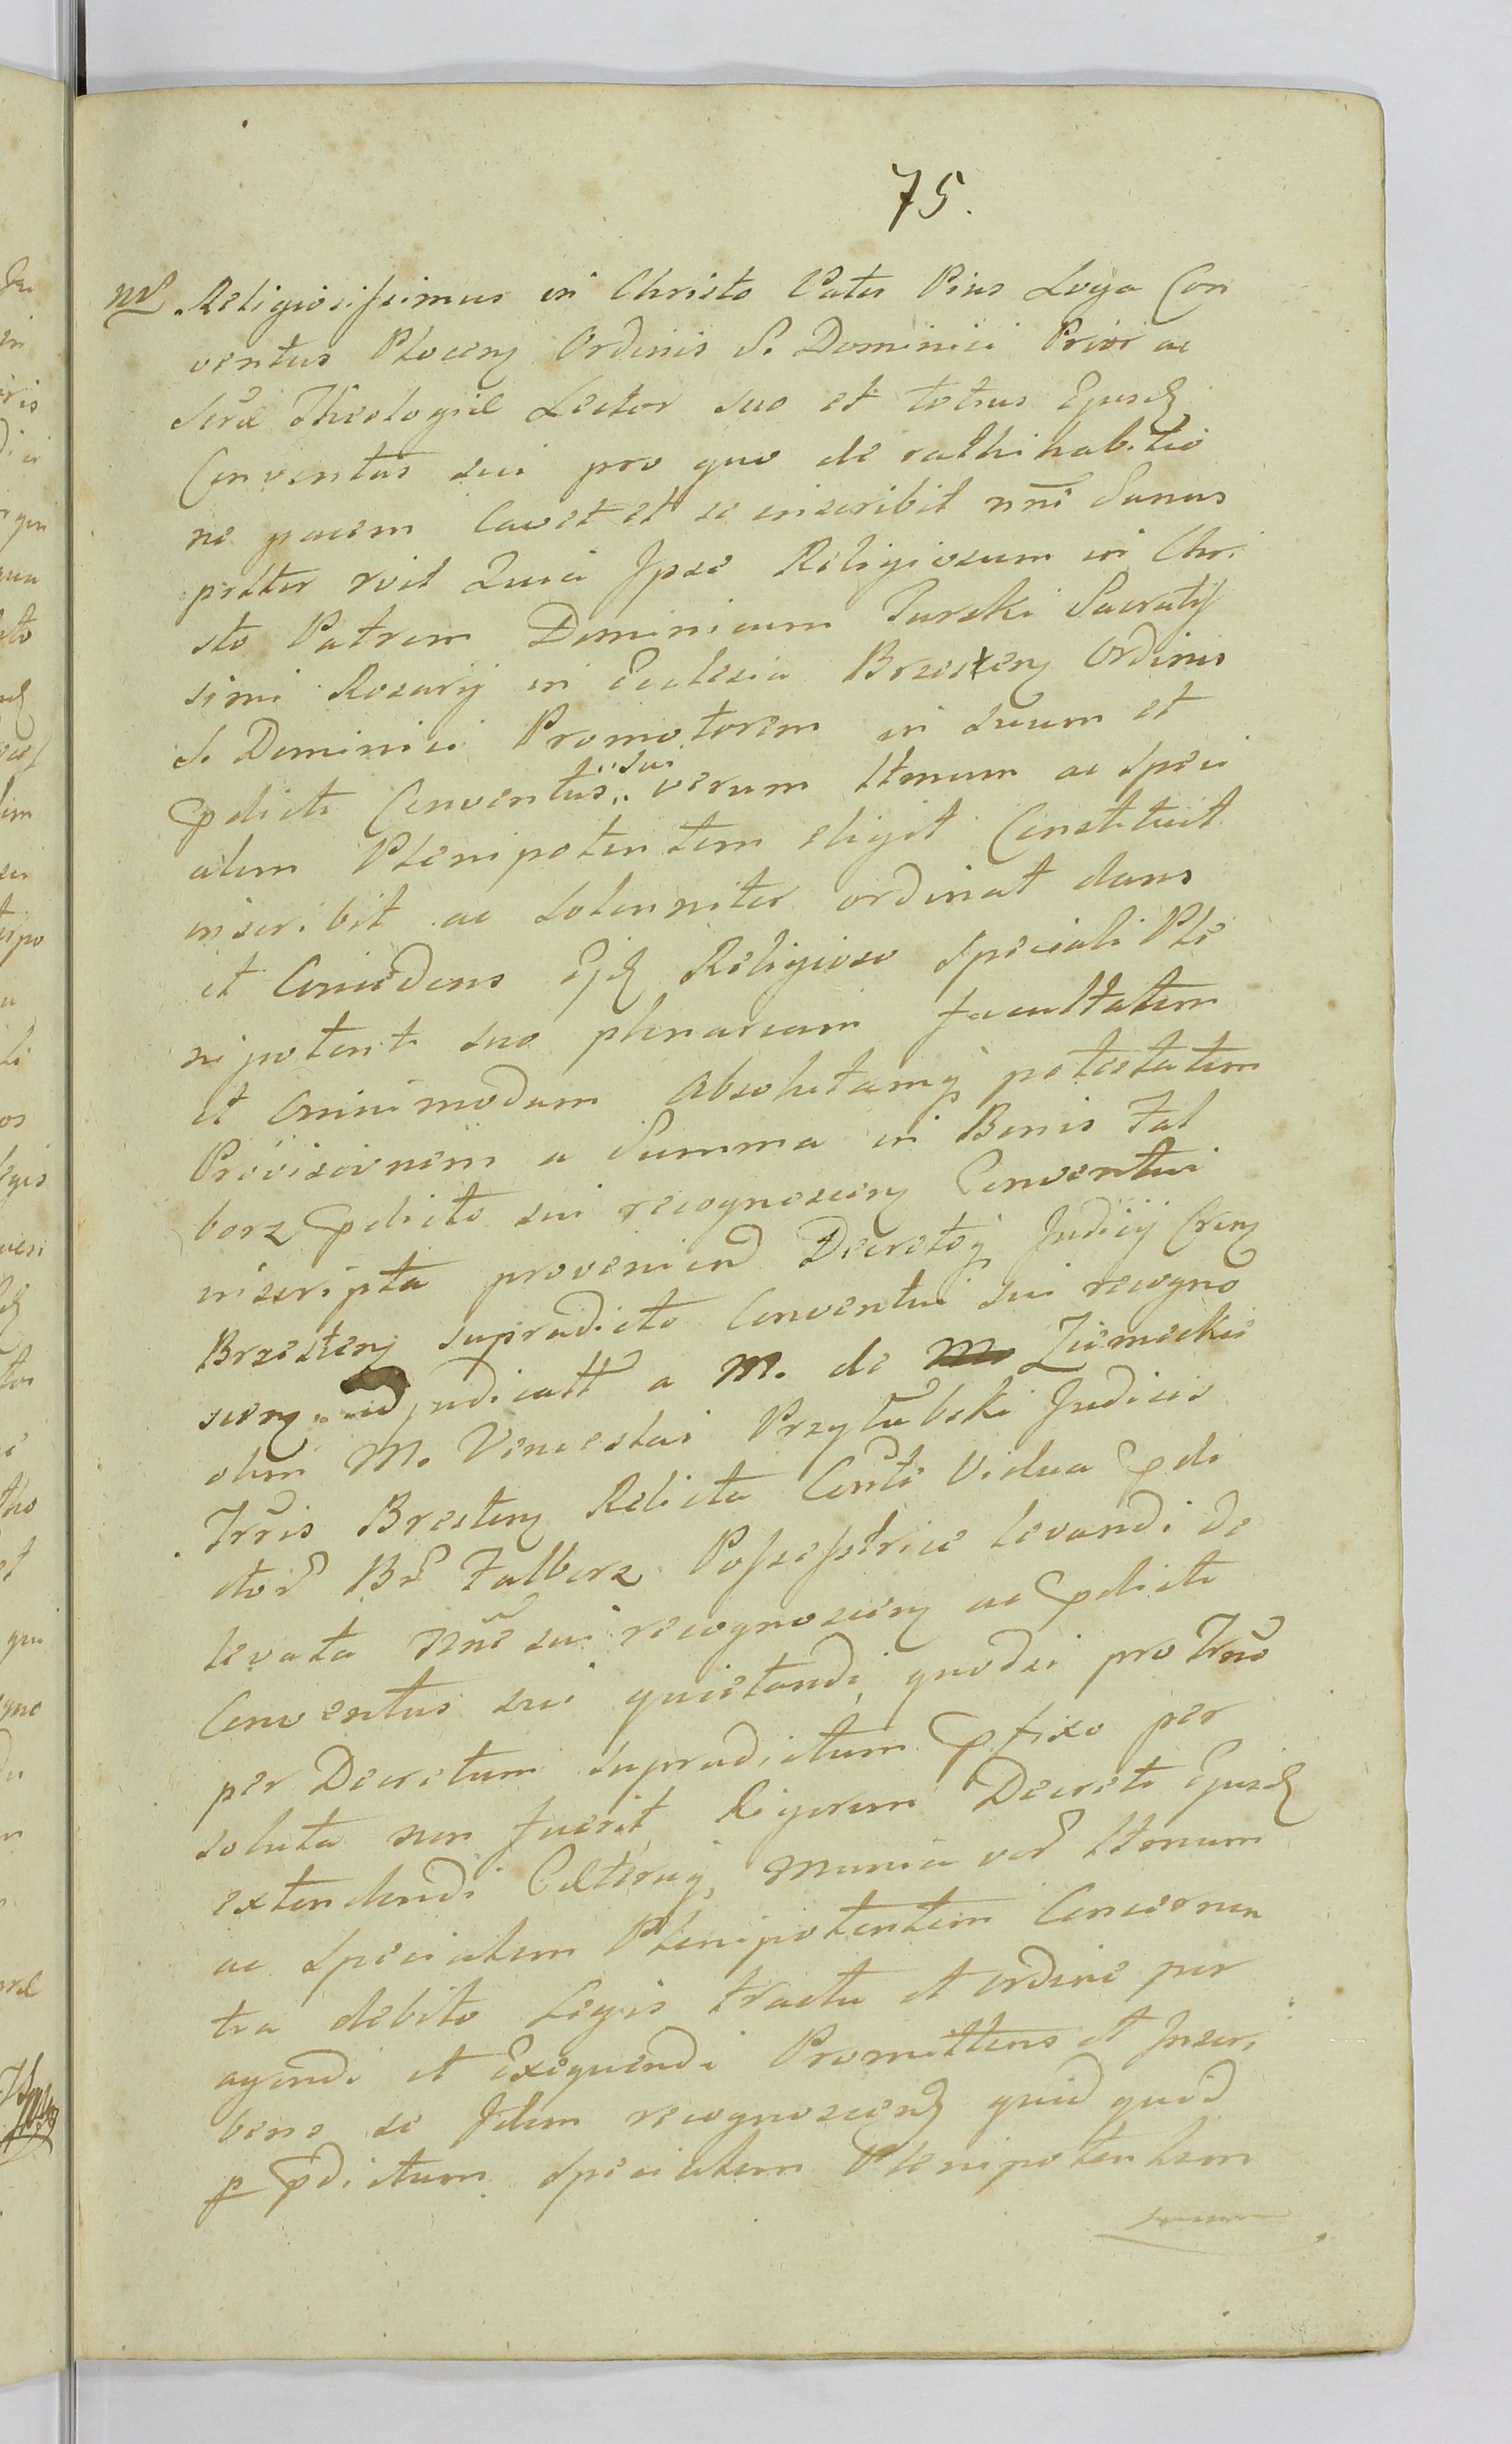 75.
Religiosissimus in Christo Pater Pius Loga Con
ventus Plocen Ordinis S. Dominici Prior ac
Scræ Theologiæ Lector suo et totius Ejusd
Conventus sui pro quo de rathihabitio
ne pacem Cavet et se inscribit nne Sanus
præter rvit Quia Ipse Religiosum in Chri
sto Patrem Dominicum Turski Sacratis
simi Rosarij in Ecclesia Brzesten Ordinis
S. Dominici Promotorem in suum et
pdicti Conventus sui verum ltmum ac speci
alem Plenipotentem eligit Constituit
inscribit ac solenniter ordinat dans
et Concedens Ejd Religioso speciali Ple
nipotenti suo plenariam facultatem
et Omnimodam Absolutamq potestatem
Provisionem a Summa in Bonis Fal
borz pdicto sui recognoscen Conventui
inscripta proveniend Decretoq Judicij Cren
Brzesten supradicto Conventui sui recogno
scen adjudicatt a M. de Ziemeckie
olim M. Venceslai Przyłubski Judicis
Trris Bresten Relicta Conte Vidua pdi
ctor Br Falborz Possessstrice levandi de
levata Nne sui recognoscen ac pdicti
Conventus sui quietandi, quodsi pro Trno
per Decretum supradictum pfixo per
soluta non fuerit, Rigorem Decreti Ejusd
extendendi Cæteraq munia ver ltmum
ac specialem Plenipotentem Concernen
tia debito Legis tractu et ordine per
agendi et Exequendi Promittens et Inscri
bens se Idem recognoscens quid quid
p pdictum specialem Plenipotentem